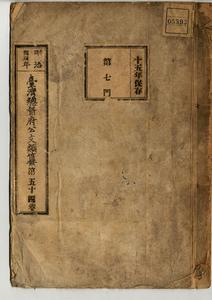 05392
十五年保存
第七門
明治
臺灣總督府公文類纂第五十四卷